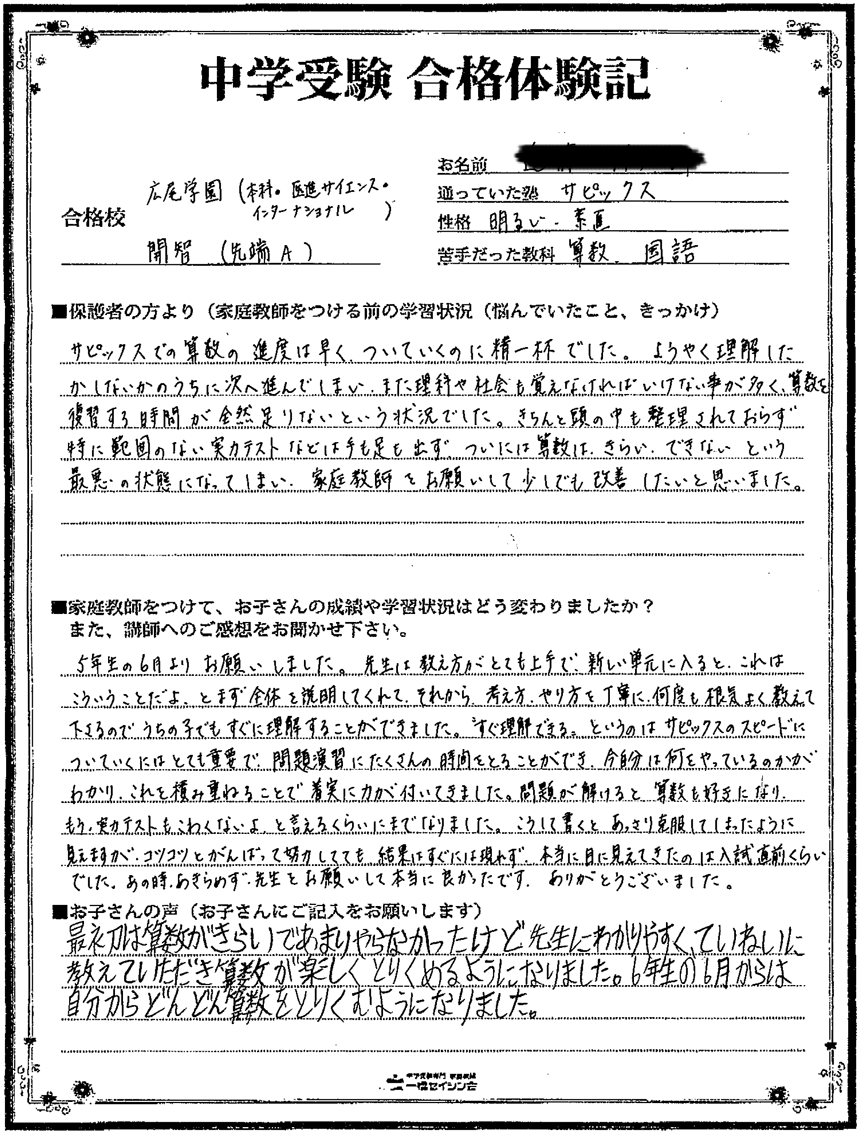 中学受験 合格体験記
お名前
通っていた塾 サピックス
性格 明るい・素直
苦手だった教科 算数、国語
合格校
広尾学園(本科・医進サイエンス・
インターナショナル)
開智(先端A)
■保護者の方より(家庭教師をつける前の学習状況(悩んでいたこと、きっかけ)
サピックスでの算数の進度は早く、ついていくのに精一杯でした。ようやく理解した
かしないかのうちに次へ進んでしまい、また理科や社会も覚えなければいけない事が多く、算数を
復習する時間が全然足りないという状況でした。きちんと頭の中も整理されておらず
特に範囲のない実力テストなどは手も足も出ず、ついには算数は、きらい、できないという
最悪の状態になってしまい、家庭教師をお願いして少しでも改善したいと思いました。
■家庭教師をつけて、お子さんの成績や学習状況はどう変わりましたか?
また、講師へのご感想をお聞かせ下さい。
5年生の6月よりお願いしました。先生は教え方がとても上手で、新しい単元に入ると、これは
こういうことだよ、とまず全体を説明してくれて、それから、考え方、やり方を丁寧に、何度も根気よく教えて
下さるのでうちの子でもすぐに理解することができました。"すぐ理解できる。というのはサピックスのスピードに
ついていくにはとても重要で、問題演習にたくさんの時間をとることができ、今自分は何をやっているのかが
わかり、これを積み重ねることで着実に力が付いてきました。問題が解けると算数も好きになり、
もう、実力テストもこわくないよ、と言えるくらいにまでなりました。こうして書くと、あっさり克服してしまったように
見えますが、コツコツとがんばって努力してても、結果はすぐには現れず、本当に目に見えてきたのは入試直前くらい
でした。あの時、あきらめず、先生とお願いして本当に良かったです。ありがとうございました。
■お子さんの声(お子さんにご記入をお願いします)
最初は算数がきらいであまりやらなかったけど先生にわかりやすく、ていねいに
教えていただき算数が楽しくとりくめるようになりました。6年生の6月からは
自分からどんどん算数をとりくむようになりました。
中学受験専門 家庭教師
一橋セイシン会